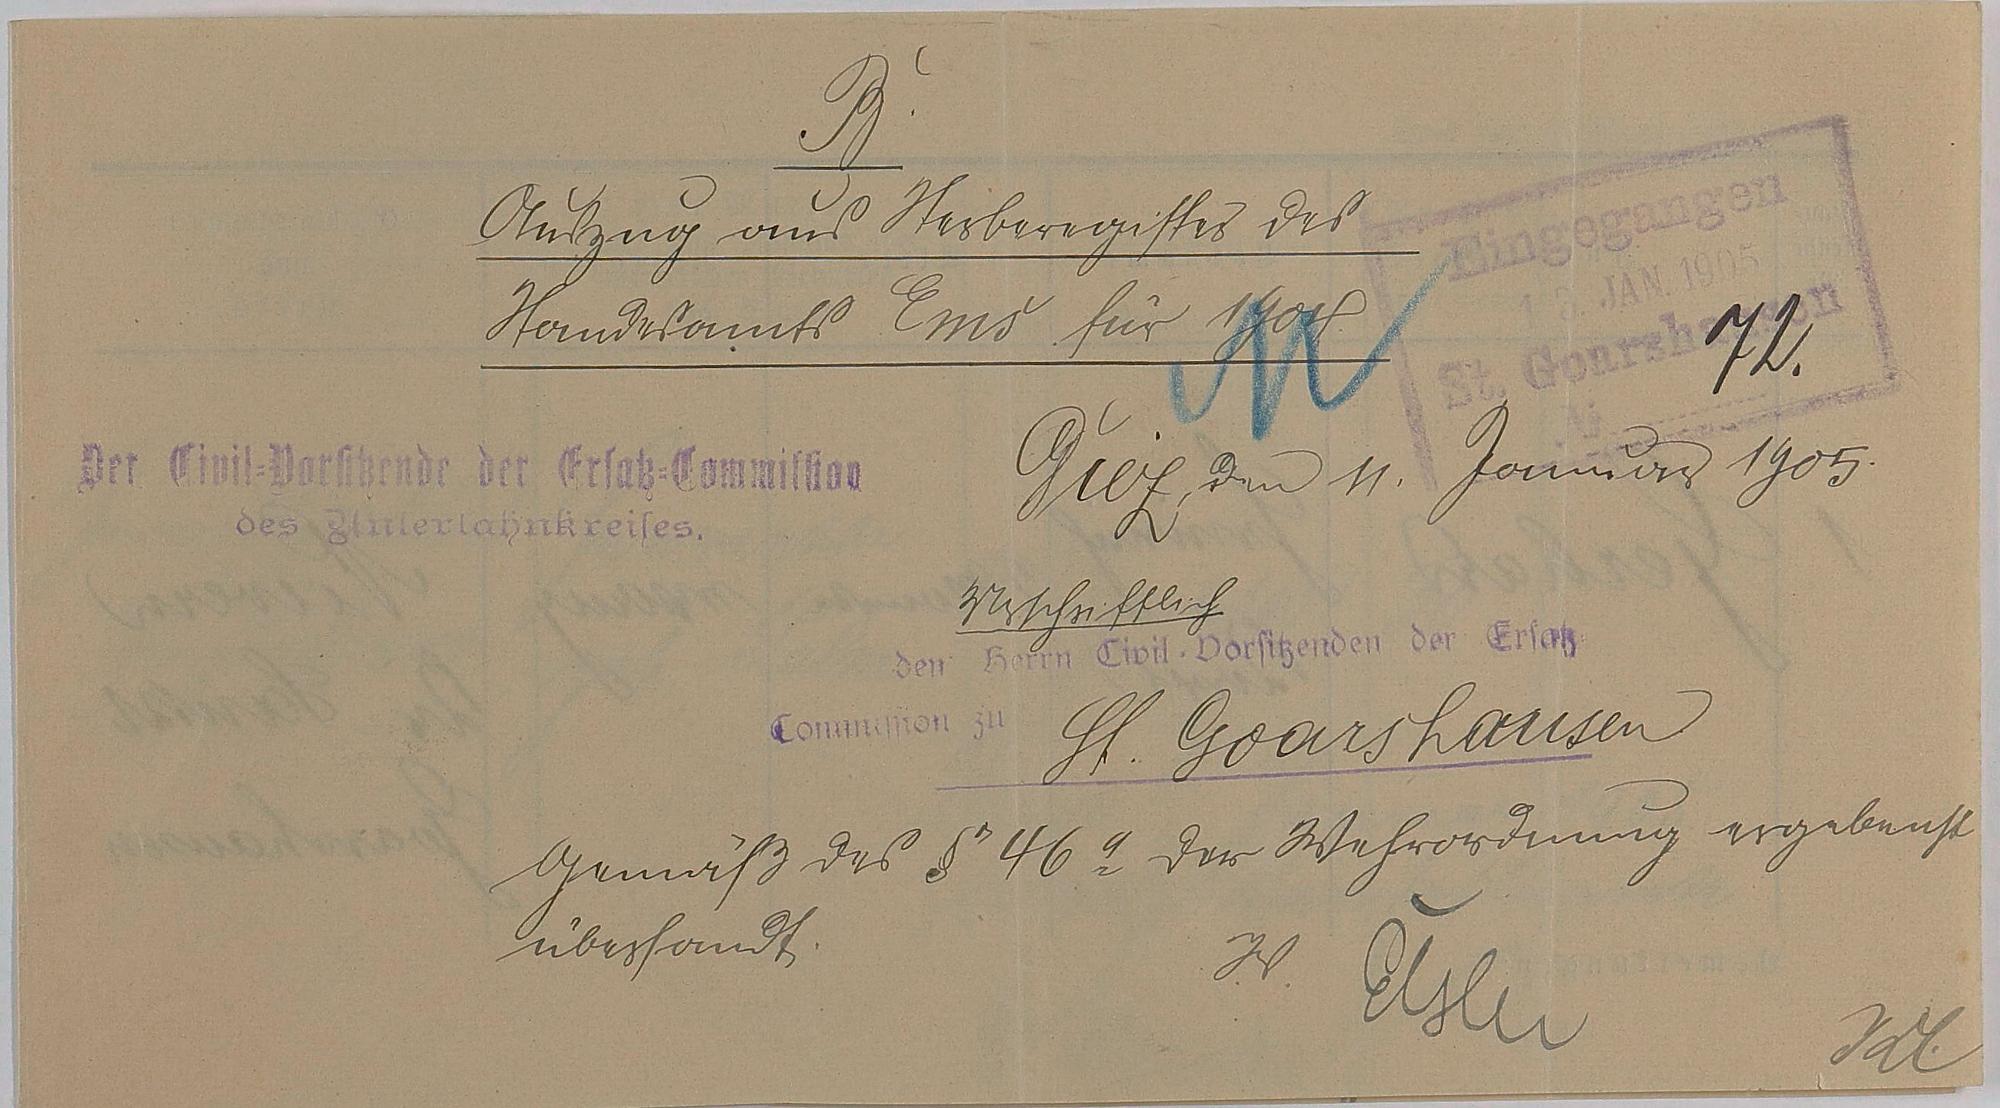 B.
Auszug aus Sterberegister des
Standesamts Ems für 1904.
Eingegangen
13. JAN. 1905
St. Goarshausen
72.
Der Civil-Vorsitzende der Ersatz-Commission
des Unterlahnkreises.
Diez, den 11. Januar 1905.
Urschriftlich
den Herrn Civil-Vorsitzenden der Ersatz-
Commission zu St. Goarshausen
gemäß des § 46 a der Wehrordnung ergebenst
übersandt.